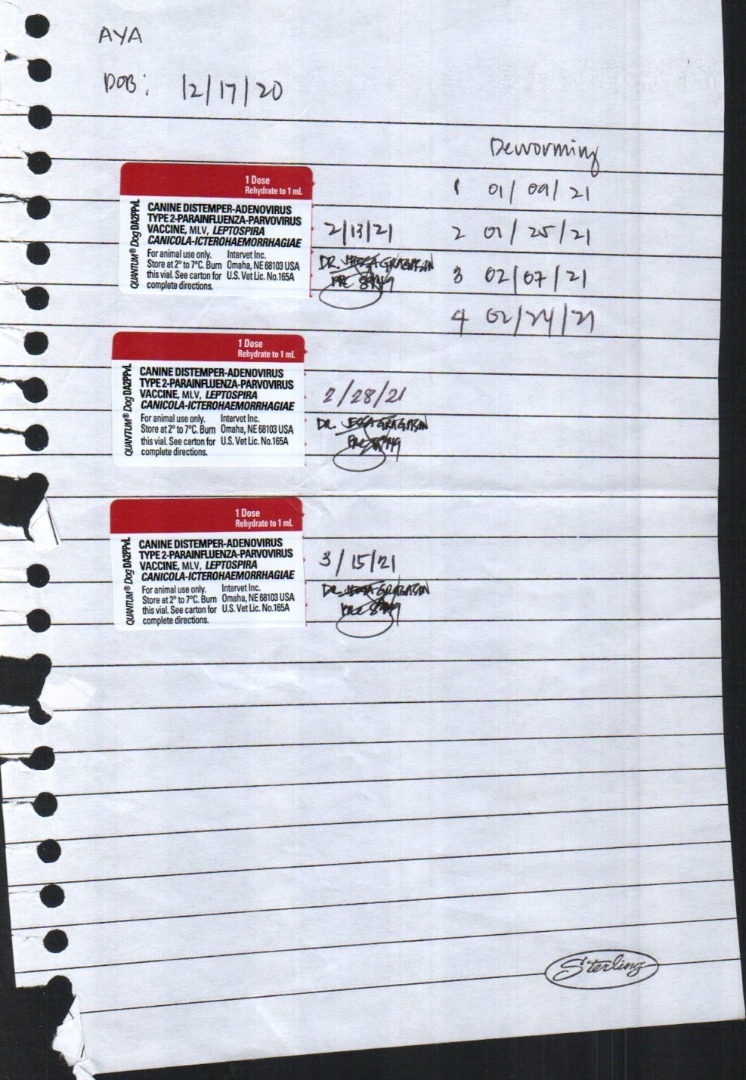 AYA
DOB: 12/17/20
Deworming
1 01/09/21
2 01/25/21
3 02/07/21
4 02/24/21
1 Dose
Rehydrate to 1 mL
QUANTUM® Dog DA2PPvL
CANINE DISTEMPER-ADENOVIRUS
TYPE 2-PARAINFLUENZA-PARVOVIRUS
VACCINE, MLV, LEPTOSPIRA
CANICOLA-ICTEROHAEMORRHAGIAE
For animal use only. Intervet Inc.
Store at 2° to 7°C. Burn Omaha, NE 68103 USA
this vial. See carton for U.S. Vet Lic. No.165A
complete directions.
2/13/21
DR.
PRC 8949
1 Dose
Rehydrate to 1 mL
QUANTUM® Dog DA2PPvL
CANINE DISTEMPER-ADENOVIRUS
TYPE 2-PARAINFLUENZA-PARVOVIRUS
VACCINE, MLV, LEPTOSPIRA
CANICOLA-ICTEROHAEMORRHAGIAE
For animal use only. Intervet Inc.
Store at 2° to 7°C. Burn Omaha, NE 68103 USA
this vial. See carton for U.S. Vet Lic. No.165A
complete directions.
2/28/21
DR.
PRC 8949
1 Dose
Rehydrate to 1 mL
QUANTUM® Dog DA2PPvL
CANINE DISTEMPER-ADENOVIRUS
TYPE 2-PARAINFLUENZA-PARVOVIRUS
VACCINE, MLV, LEPTOSPIRA
CANICOLA-ICTEROHAEMORRHAGIAE
For animal use only. Intervet Inc.
Store at 2° to 7°C. Burn Omaha, NE 68103 USA
this vial. See carton for U.S. Vet Lic. No.165A
complete directions.
3/15/21
DR.
PRC 8949
Sterling